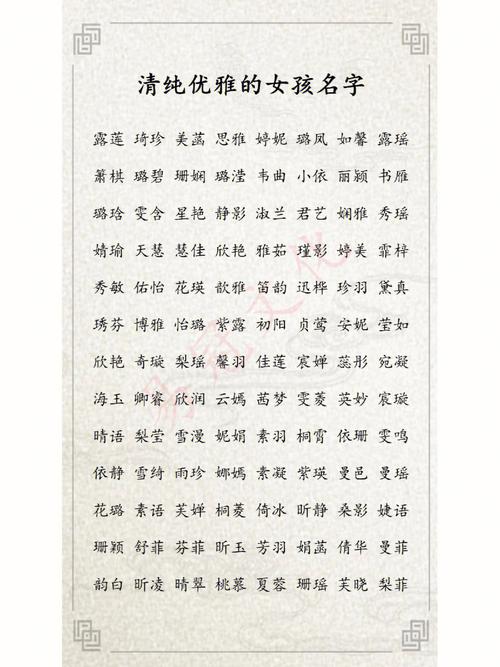 清纯优雅的女孩名字
露莲 琦珍 美菡 思雅 婷妮 璐凤 如馨 露瑶
萧棋 璐碧 珊娴 璐滢 韦曲 小依 丽颖 书雁
璐晗 雯含 星艳 静影 淑兰 君艺 娴雅 秀瑶
婧瑜 天慧 慧佳 欣艳 雅茹 瑾影 婷美 霏梓
秀敏 佑怡 花瑛 歆雅 笛韵 迅桦 珍羽 黛真
琇芬 博雅 怡璐 紫露 初阳 贞莺 安妮 莹如
欣艳 奇璇 梨瑶 馨羽 佳莲 宸婵 蕊彤 宛凝
海玉 卿睿 欣润 云嫣 茜梦 雯菱 英妙 宸璇
晴语 梨莹 雪漫 妮娟 素羽 桐霄 依珊 雯鸣
依静 雪绮 雨珍 娜嫣 素凝 紫瑛 曼邑 曼瑶
花璐 素语 芙婵 桐菱 倚冰 昕静 桑影 婕语
珊颖 舒菲 芬菲 昕玉 芳羽 娟菡 倩华 曼菲
韵白 昕凌 晴翠 桃慕 夏蓉 珊瑶 芙晓 梨菲